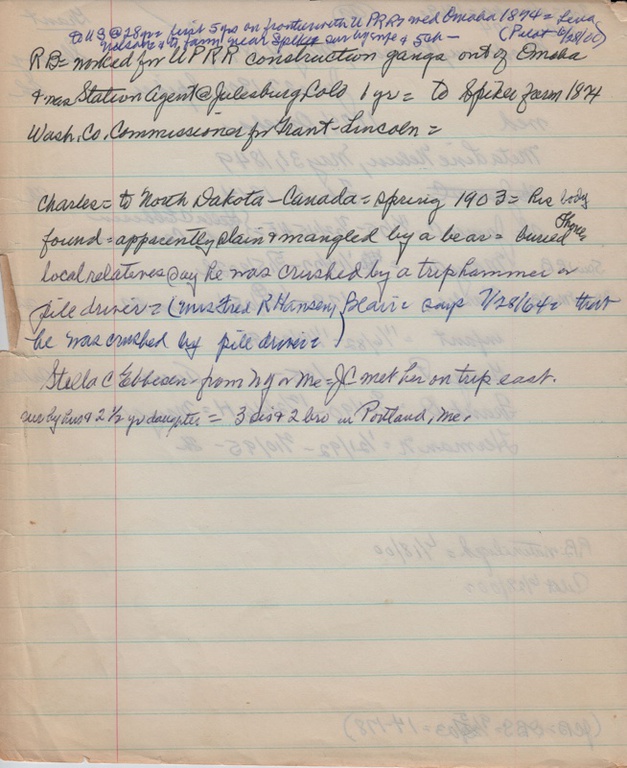 to US @ 28 yr = first 5 yrs on frontier with U PRR = med Omaha 1874 = Lena
Nelson & to farm near Spiker sur by wife & 5 ch - (Pilot 6/28/00)
RB = worked for UPRR construction gangs out of Omaha
& was Station Agent @ Julesburg Colo 1 yr = to Spiker farm 1874
Wash. Co. Commissioner for Grant - Lincoln =
Charles = to North Dakota - Canada = spring 1903 = his body
found = apparently slain & mangled by a bear = buried there
local relatives say he was crushed by a triphammer or
pile driver = (Mrs Fred R Hansen, Blair = says 7/28/64 = that
he was crushed by pile driver = )
Stella C Ebbesen - from NY or Me = JC met her on trip east.
sur by hus & 2 1/2 yr daughter = 3 sis & 2 bro in Portland, Me.